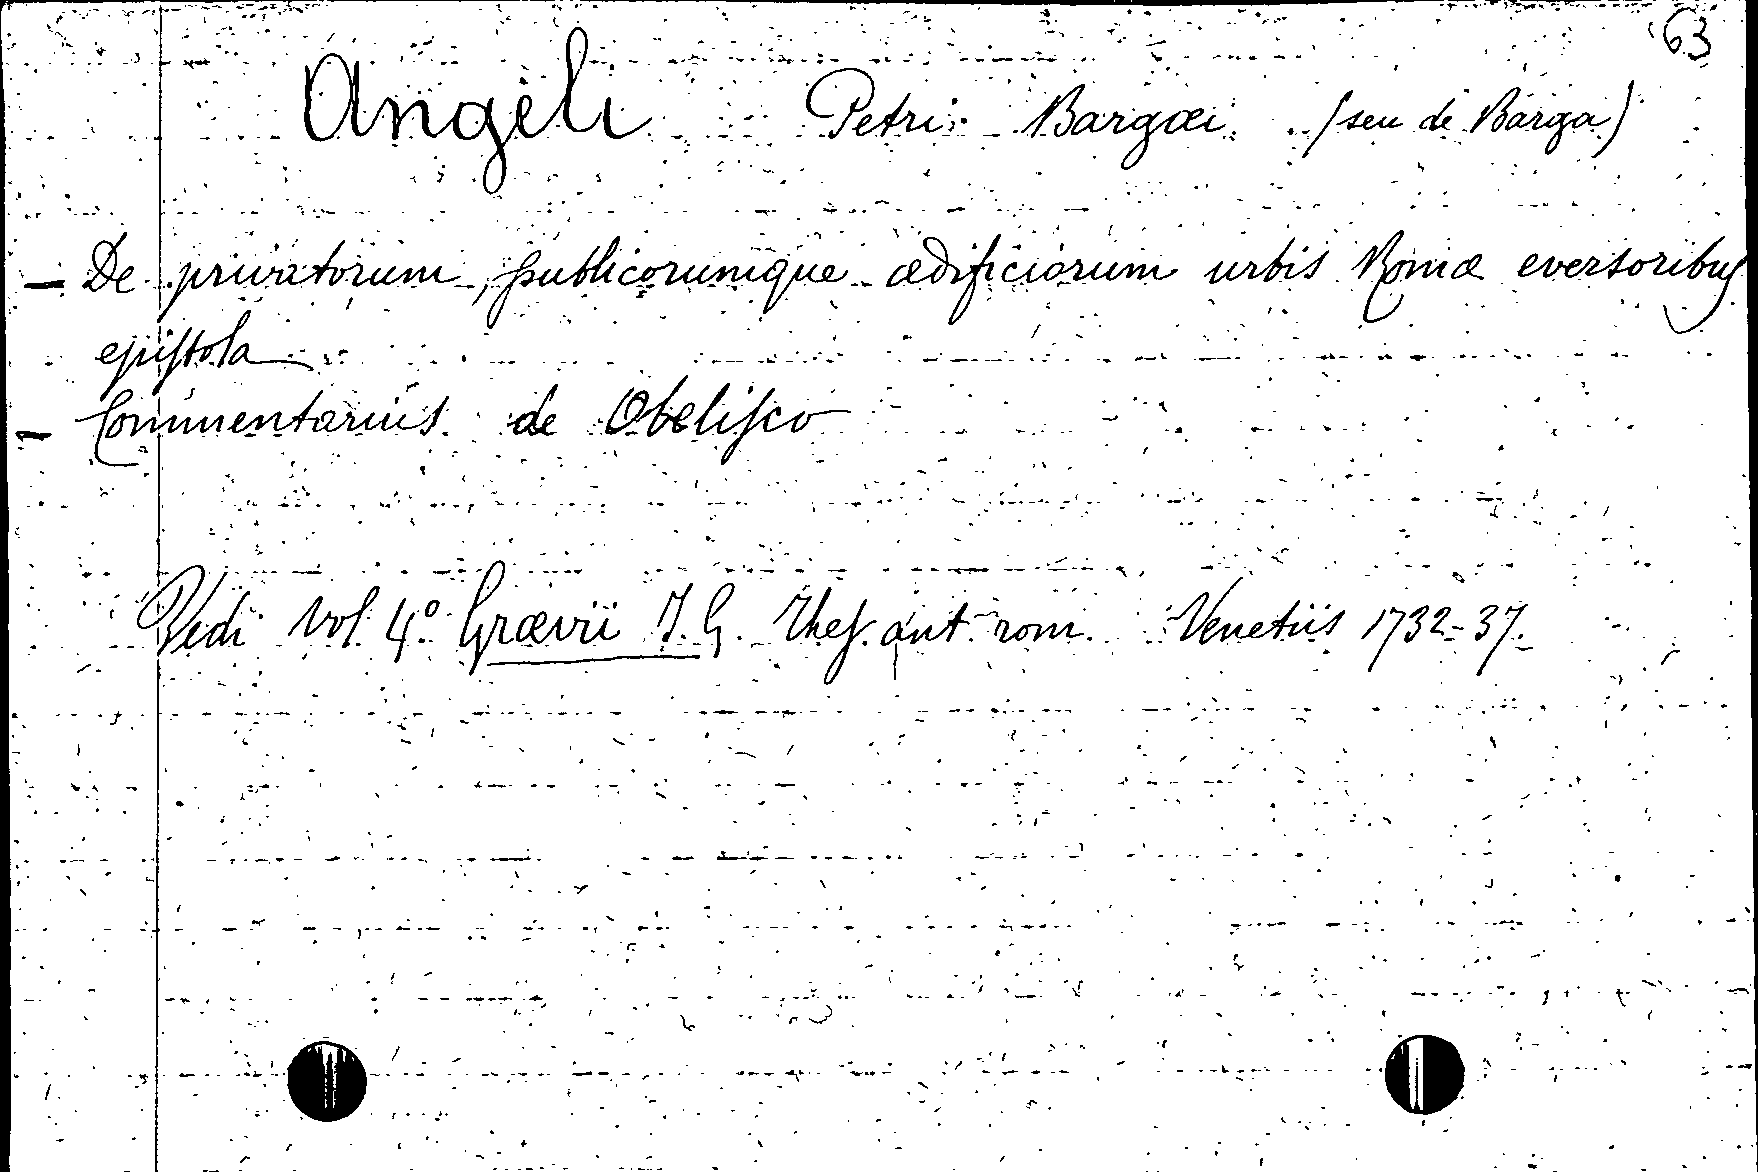 63
Angeli Petri Bargæi (seu de Barga)
- De privatorum, publicorumque ædificiorum urbis Romæ eversoribus
epistola
- Commentarius de Obelisco
Vedi vol. 4º Grævii J. G. Thes. ant. rom. Venetiis 1732-37.